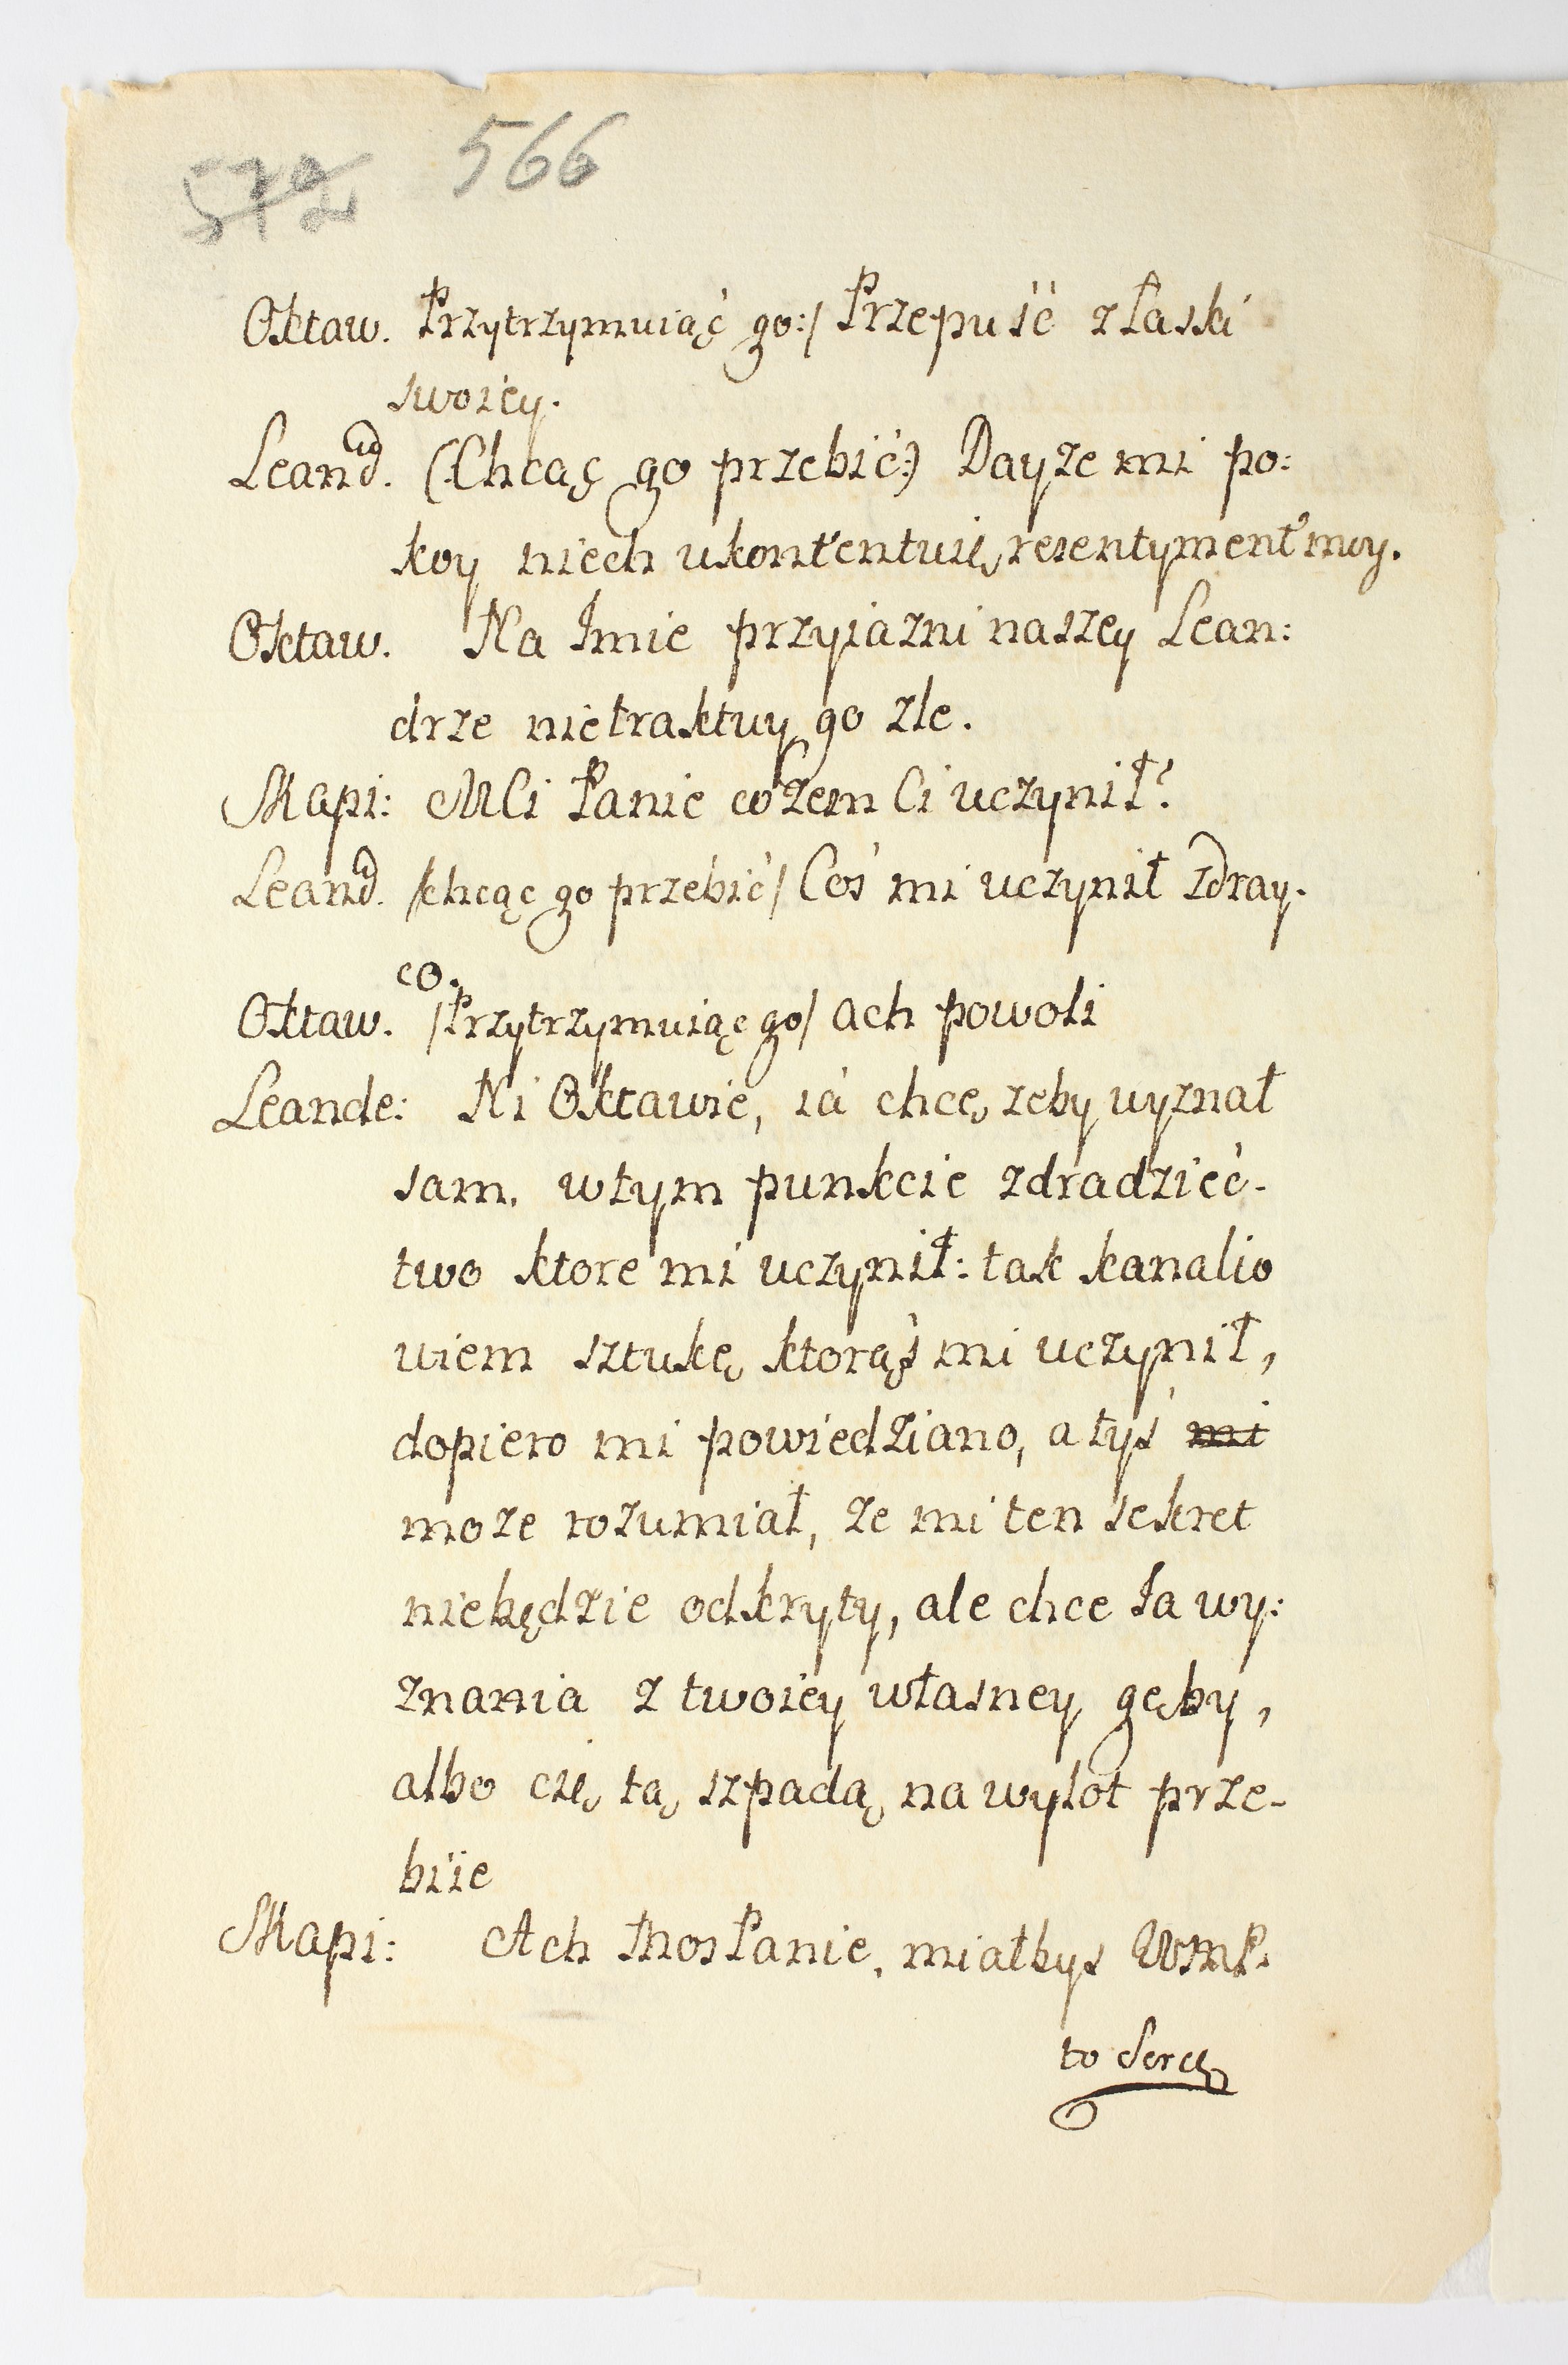 572 566
Oktaw. Przytrzymuiąc go:/ Przepuść z łaski
swoiey.
Leand. (Chcąc go przebić:) Dayże mi po:
koy niech ukontentuię resentyment moy.
Oktaw. Na Imie przyiazni naszey Lean:
drze nietraktuy go zle.
Skapi: MCi Panie cożem Ci uczynił?
Leand. /chcąc go przebić/ Coś mi uczynił zdray.
co.
Oktaw. /Przytrzymuiąc go/ ach powoli
Leande: Ni Oktawie, ia chcę zeby wyznał
sam. wtym punkcie zdradziec-
two ktore mi uczynił: tak kanalio
wiem sztukę ktorąś mi uczynił,
dopiero mi powiedziano, a tyś mi
moze rozumiał, ze mi ten sekret
niebędzie odkryty, ale chce Ia wy:
znania z twoiey własney gęby,
albo cię tą szpadą na wylot prze-
biie
Skapi: Ach MosPanie, miałbys WMP.
to Serce